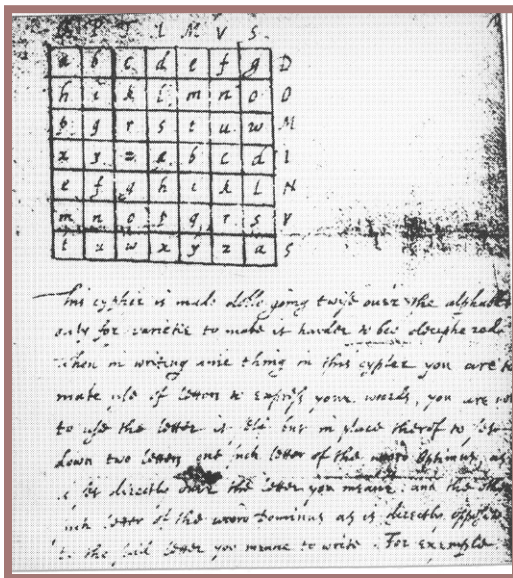 O P T I M V S
a b c d e f g D
h i k l m n o O
p q r s t u w M
x y z a b c d I
e f g h i k l N
m n o p q r s V
t u w x y z a S
This cypher is made doble going twise over the alphabet
only for varietie to make it harder to bee
When in writing anie thing in this cypher you are
make use of letters to express your words, you are not
to use the letter it self but in place therof to
down two letters one such letter of the word Optimus as
is directly over the letter you meane, and the other
such letter of the word Dominus as is directly opposite
to the said letter you meane to write. For example